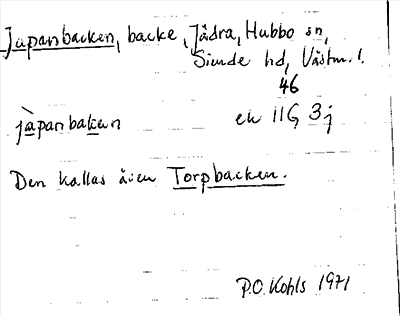 Japanbacken, backe, Jädra, Hubbo sn,
Siende hd, Västm. l.
46
jàpanbaken
ek 11G 3j
Den kallas även Torpbacken.
P.O. Kohls 1971